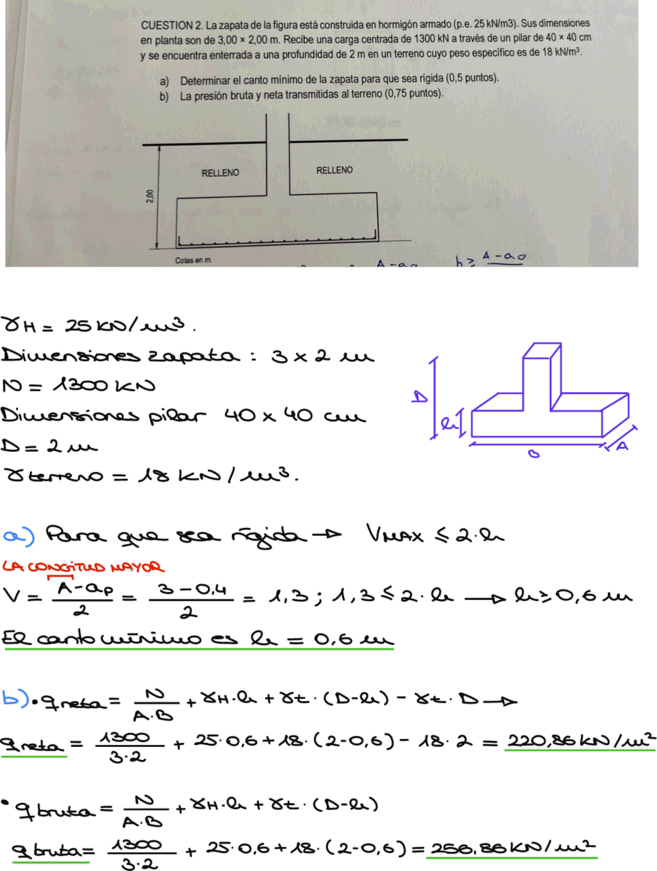 CUESTION 2. La zapata de la figura está construida en hormigón armado (p.e. 25 kN/m3). Sus dimensiones
en planta son de 3,00 × 2,00 m. Recibe una carga centrada de 1300 kN a través de un pilar de 40 × 40 cm
y se encuentra enterrada a una profundidad de 2 m en un terreno cuyo peso especifico es de 18 kN/m³.
a) Determinar el canto mínimo de la zapata para que sea rígida (0,5 puntos).
b) La presión bruta y neta transmitidas al terreno (0,75 puntos).
RELLENO
RELLENO
2,00
Cotas en m
A-a0
h ≥ A-a0
γH = 25 kN/m³.
Dimensiones zapata : 3 x 2 m
N = 1300 kN
Dimensiones pilar 40 x 40 cm
D = 2 m
γterreno = 18 kN/m³.
D
h
B
A
a) Para que sea rígida → VMAX ≤ 2·h
LA LONGITUD MAYOR
V = A-ap/2 = 3-0,4/2 = 1,3 ; 1,3 ≤ 2·h → h ≥ 0,6 m
El canto mínimo es h = 0,6 m
b) • qneta = N/A·B + γH·h + γt·(D-h) - γt·D →
qneta = 1300/3·2 + 25·0,6 + 18·(2-0,6) - 18·2 = 220,86 kN/m²
• qbruta = N/A·B + γH·h + γt·(D-h)
qbruta = 1300/3·2 + 25·0,6 + 18·(2-0,6) = 256,86 kN/m²